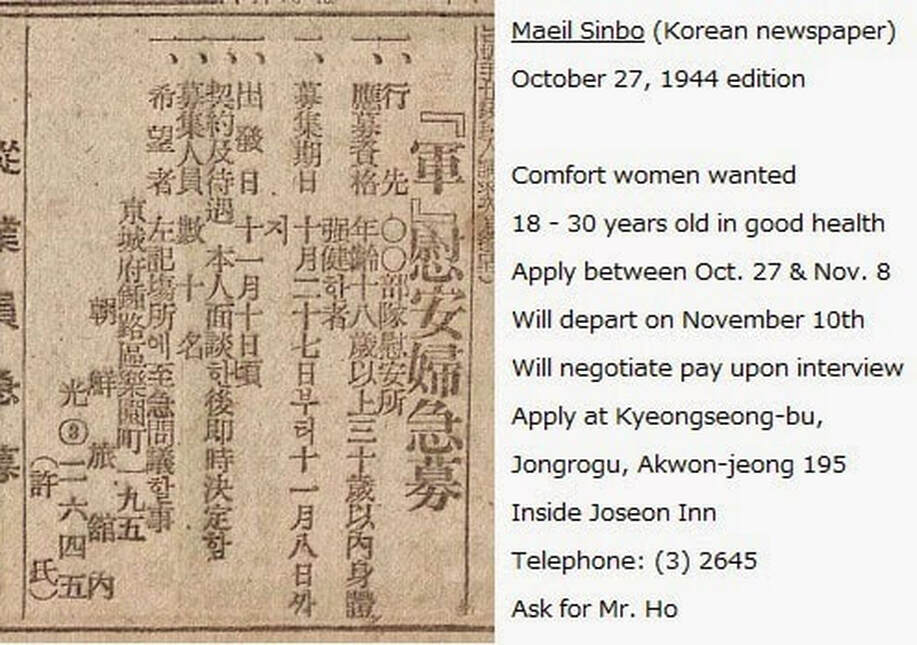 『軍』慰安婦急募
一、行先 〇〇部隊慰安所
一、應募資格 年齡十八歲以上三十歲以內身體
强健한者
一、募集期日 十月二十七日부터十一月八日까
지
一、出發日 十一月十日頃
一、契約及待遇 本人面談한後即時決定함
一、募集人員 數十名
一、希望者 左記場所에至急問議할事
京城府鍾路區樂園町一九五
朝鮮旅館內
光③二六四五
(許氏)
從業員急募
Maeil Sinbo (Korean newspaper)
October 27, 1944 edition
Comfort women wanted
18 - 30 years old in good health
Apply between Oct. 27 & Nov. 8
Will depart on November 10th
Will negotiate pay upon interview
Apply at Kyeongseong-bu,
Jongrogu, Akwon-jeong 195
Inside Joseon Inn
Telephone: (3) 2645
Ask for Mr. Ho